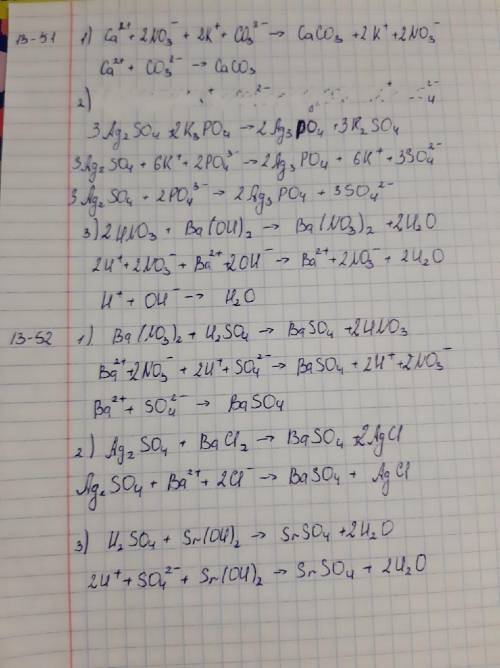 13-51 1) Ca²⁺ + 2NO₃⁻ + 2K⁺ + CO₃²⁻ → CaCO₃ + 2K⁺ + 2NO₃⁻
Ca²⁺ + CO₃²⁻ → CaCO₃
2)
3Ag₂SO₄ + 2K₃PO₄ → 2Ag₃PO₄ + 3K₂SO₄
3Ag₂SO₄ + 6K⁺ + 2PO₄³⁻ → 2Ag₃PO₄ + 6K⁺ + 3SO₄²⁻
3Ag₂SO₄ + 2PO₄³⁻ → 2Ag₃PO₄ + 3SO₄²⁻
3) 2HNO₃ + Ba(OH)₂ → Ba(NO₃)₂ + 2H₂O
2H⁺ + 2NO₃⁻ + Ba²⁺ + 2OH⁻ → Ba²⁺ + 2NO₃⁻ + 2H₂O
H⁺ + OH⁻ → H₂O
13-52 1) Ba(NO₃)₂ + H₂SO₄ → BaSO₄ + 2HNO₃
Ba²⁺ + 2NO₃⁻ + 2H⁺ + SO₄²⁻ → BaSO₄ + 2H⁺ + 2NO₃⁻
Ba²⁺ + SO₄²⁻ → BaSO₄
2) Ag₂SO₄ + BaCl₂ → BaSO₄ + 2AgCl
Ag₂SO₄ + Ba²⁺ + 2Cl⁻ → BaSO₄ + AgCl
3) H₂SO₄ + Sr(OH)₂ → SrSO₄ + 2H₂O
2H⁺ + SO₄²⁻ + Sr(OH)₂ → SrSO₄ + 2H₂O